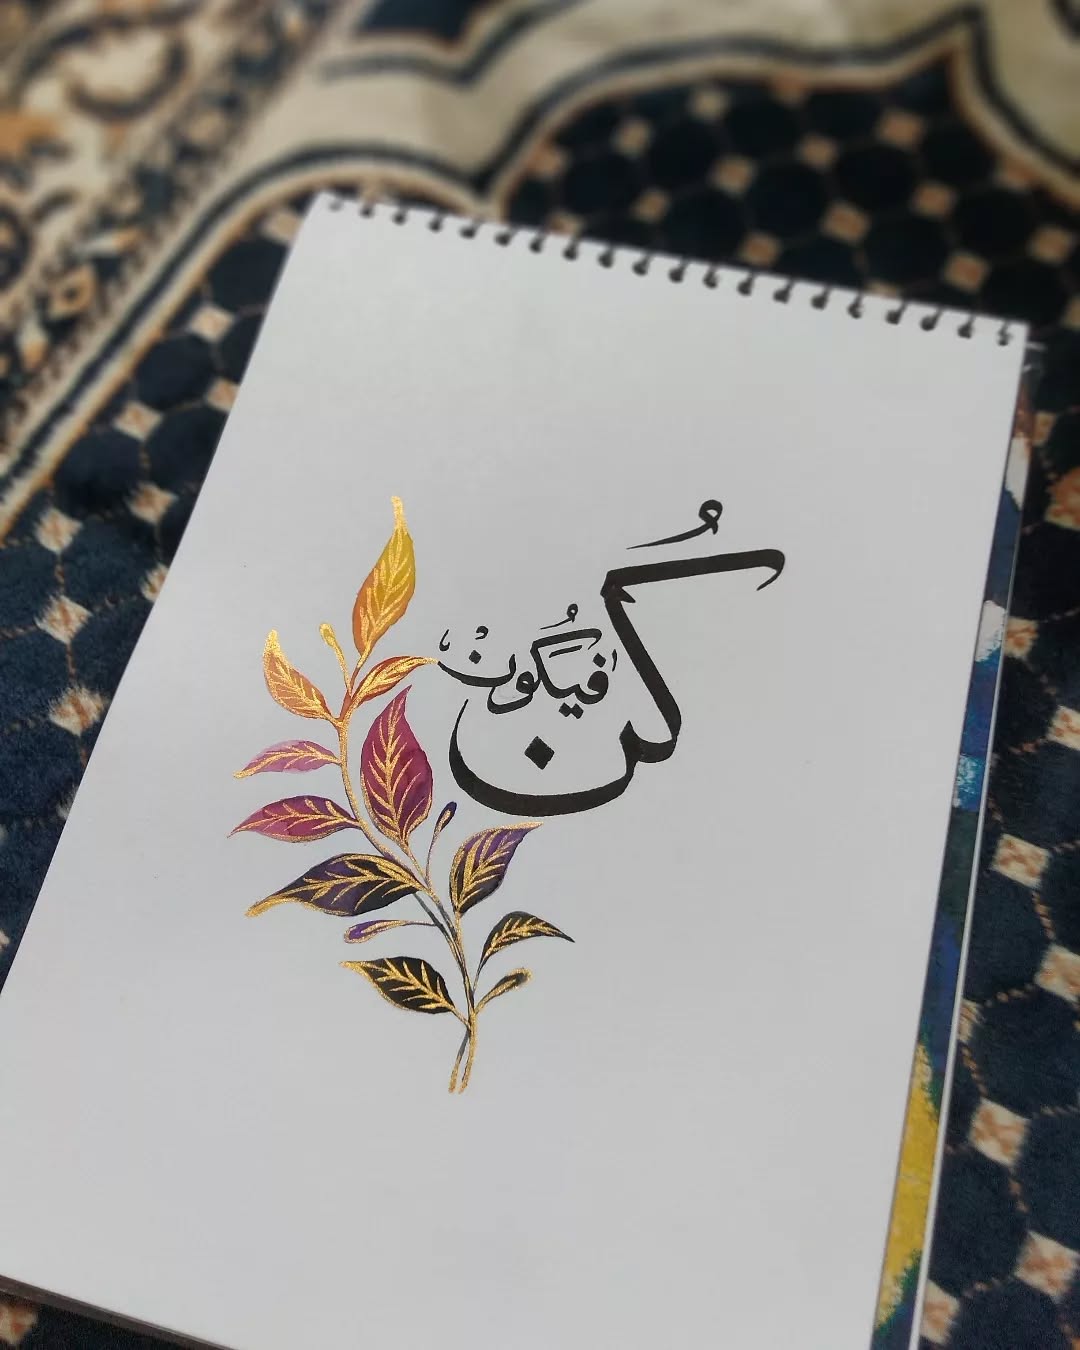 كُن
فيَكُونْ